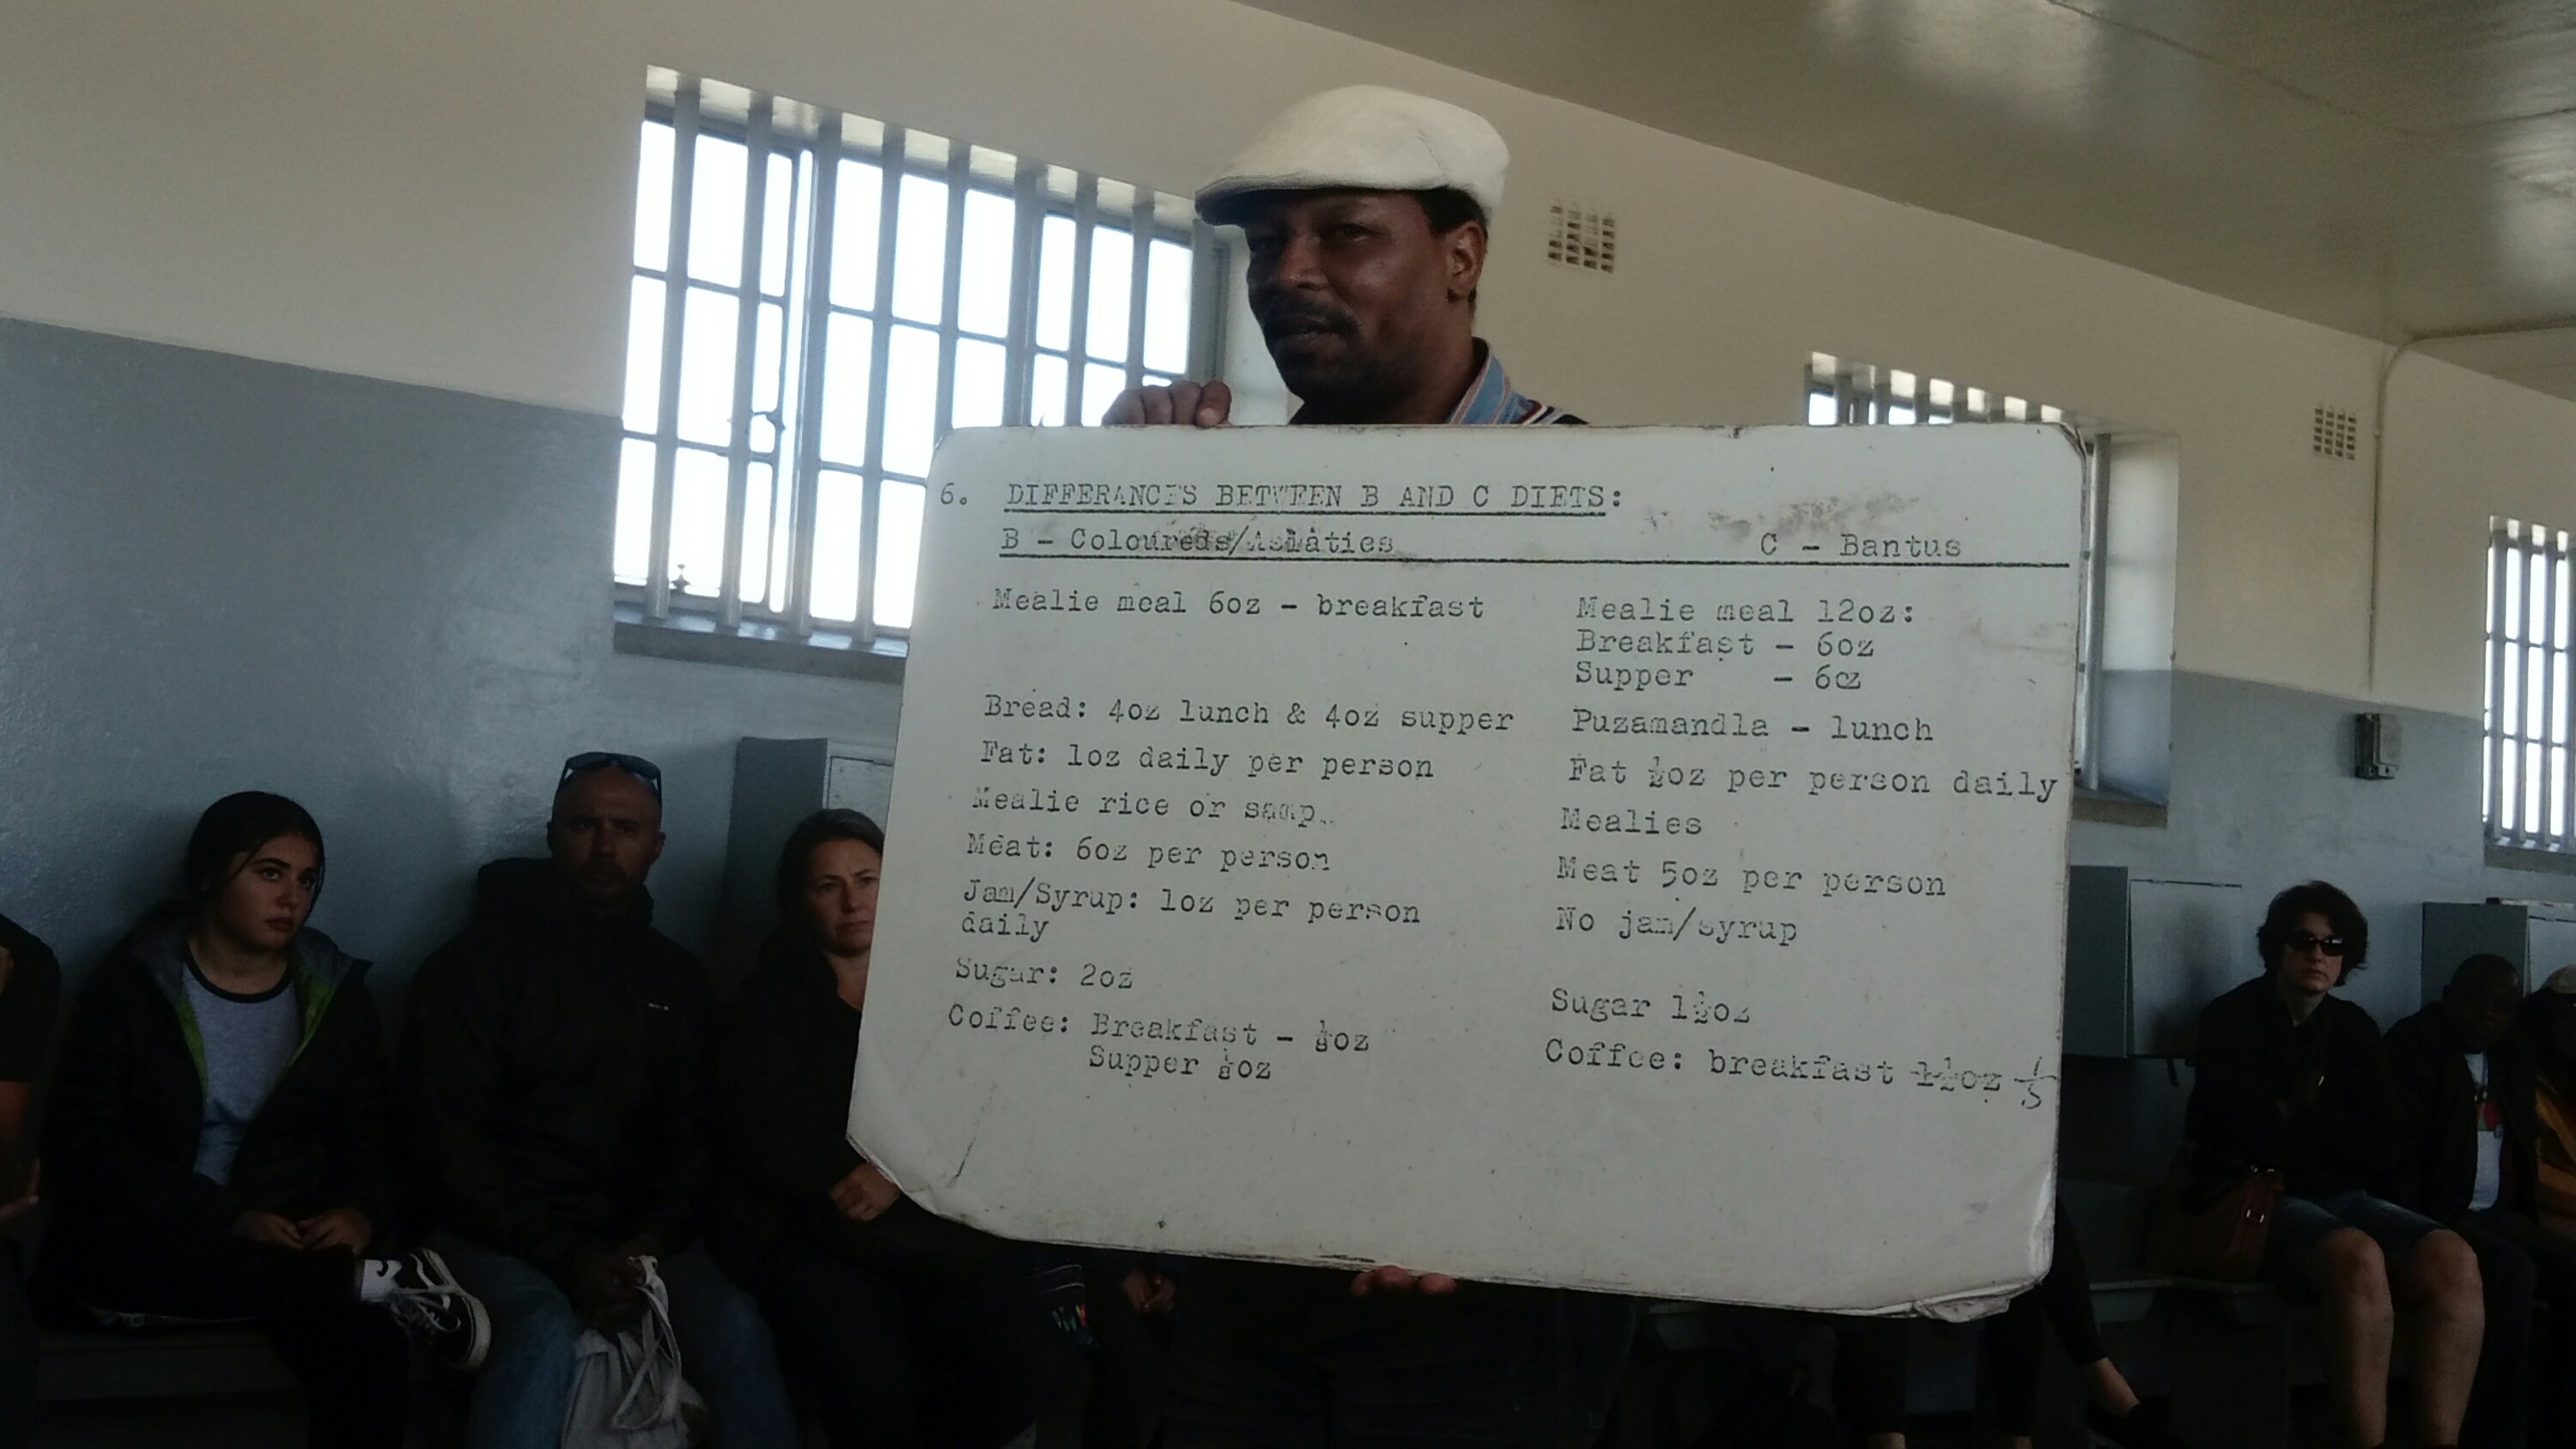 6. DIFFERANCES BETWEEN B AND C DIETS:
B - Coloureds/Asiaties
C - Bantus
Mealie meal 6oz - breakfast
Mealie meal 12oz:
Breakfast - 6oz
Supper - 6oz
Bread: 4oz lunch & 4oz supper
Puzamandla - lunch
Fat: 1oz daily per person
Fat ½oz per person daily
Mealie rice or samp.
Mealies
Meat: 6oz per person
Meat 5oz per person
Jam/Syrup: 1oz per person
daily
No jam/syrup
Sugar: 2oz
Sugar 1½oz
Coffee: Breakfast - ⅛oz
Supper ⅛oz
Coffee: breakfast 1½oz